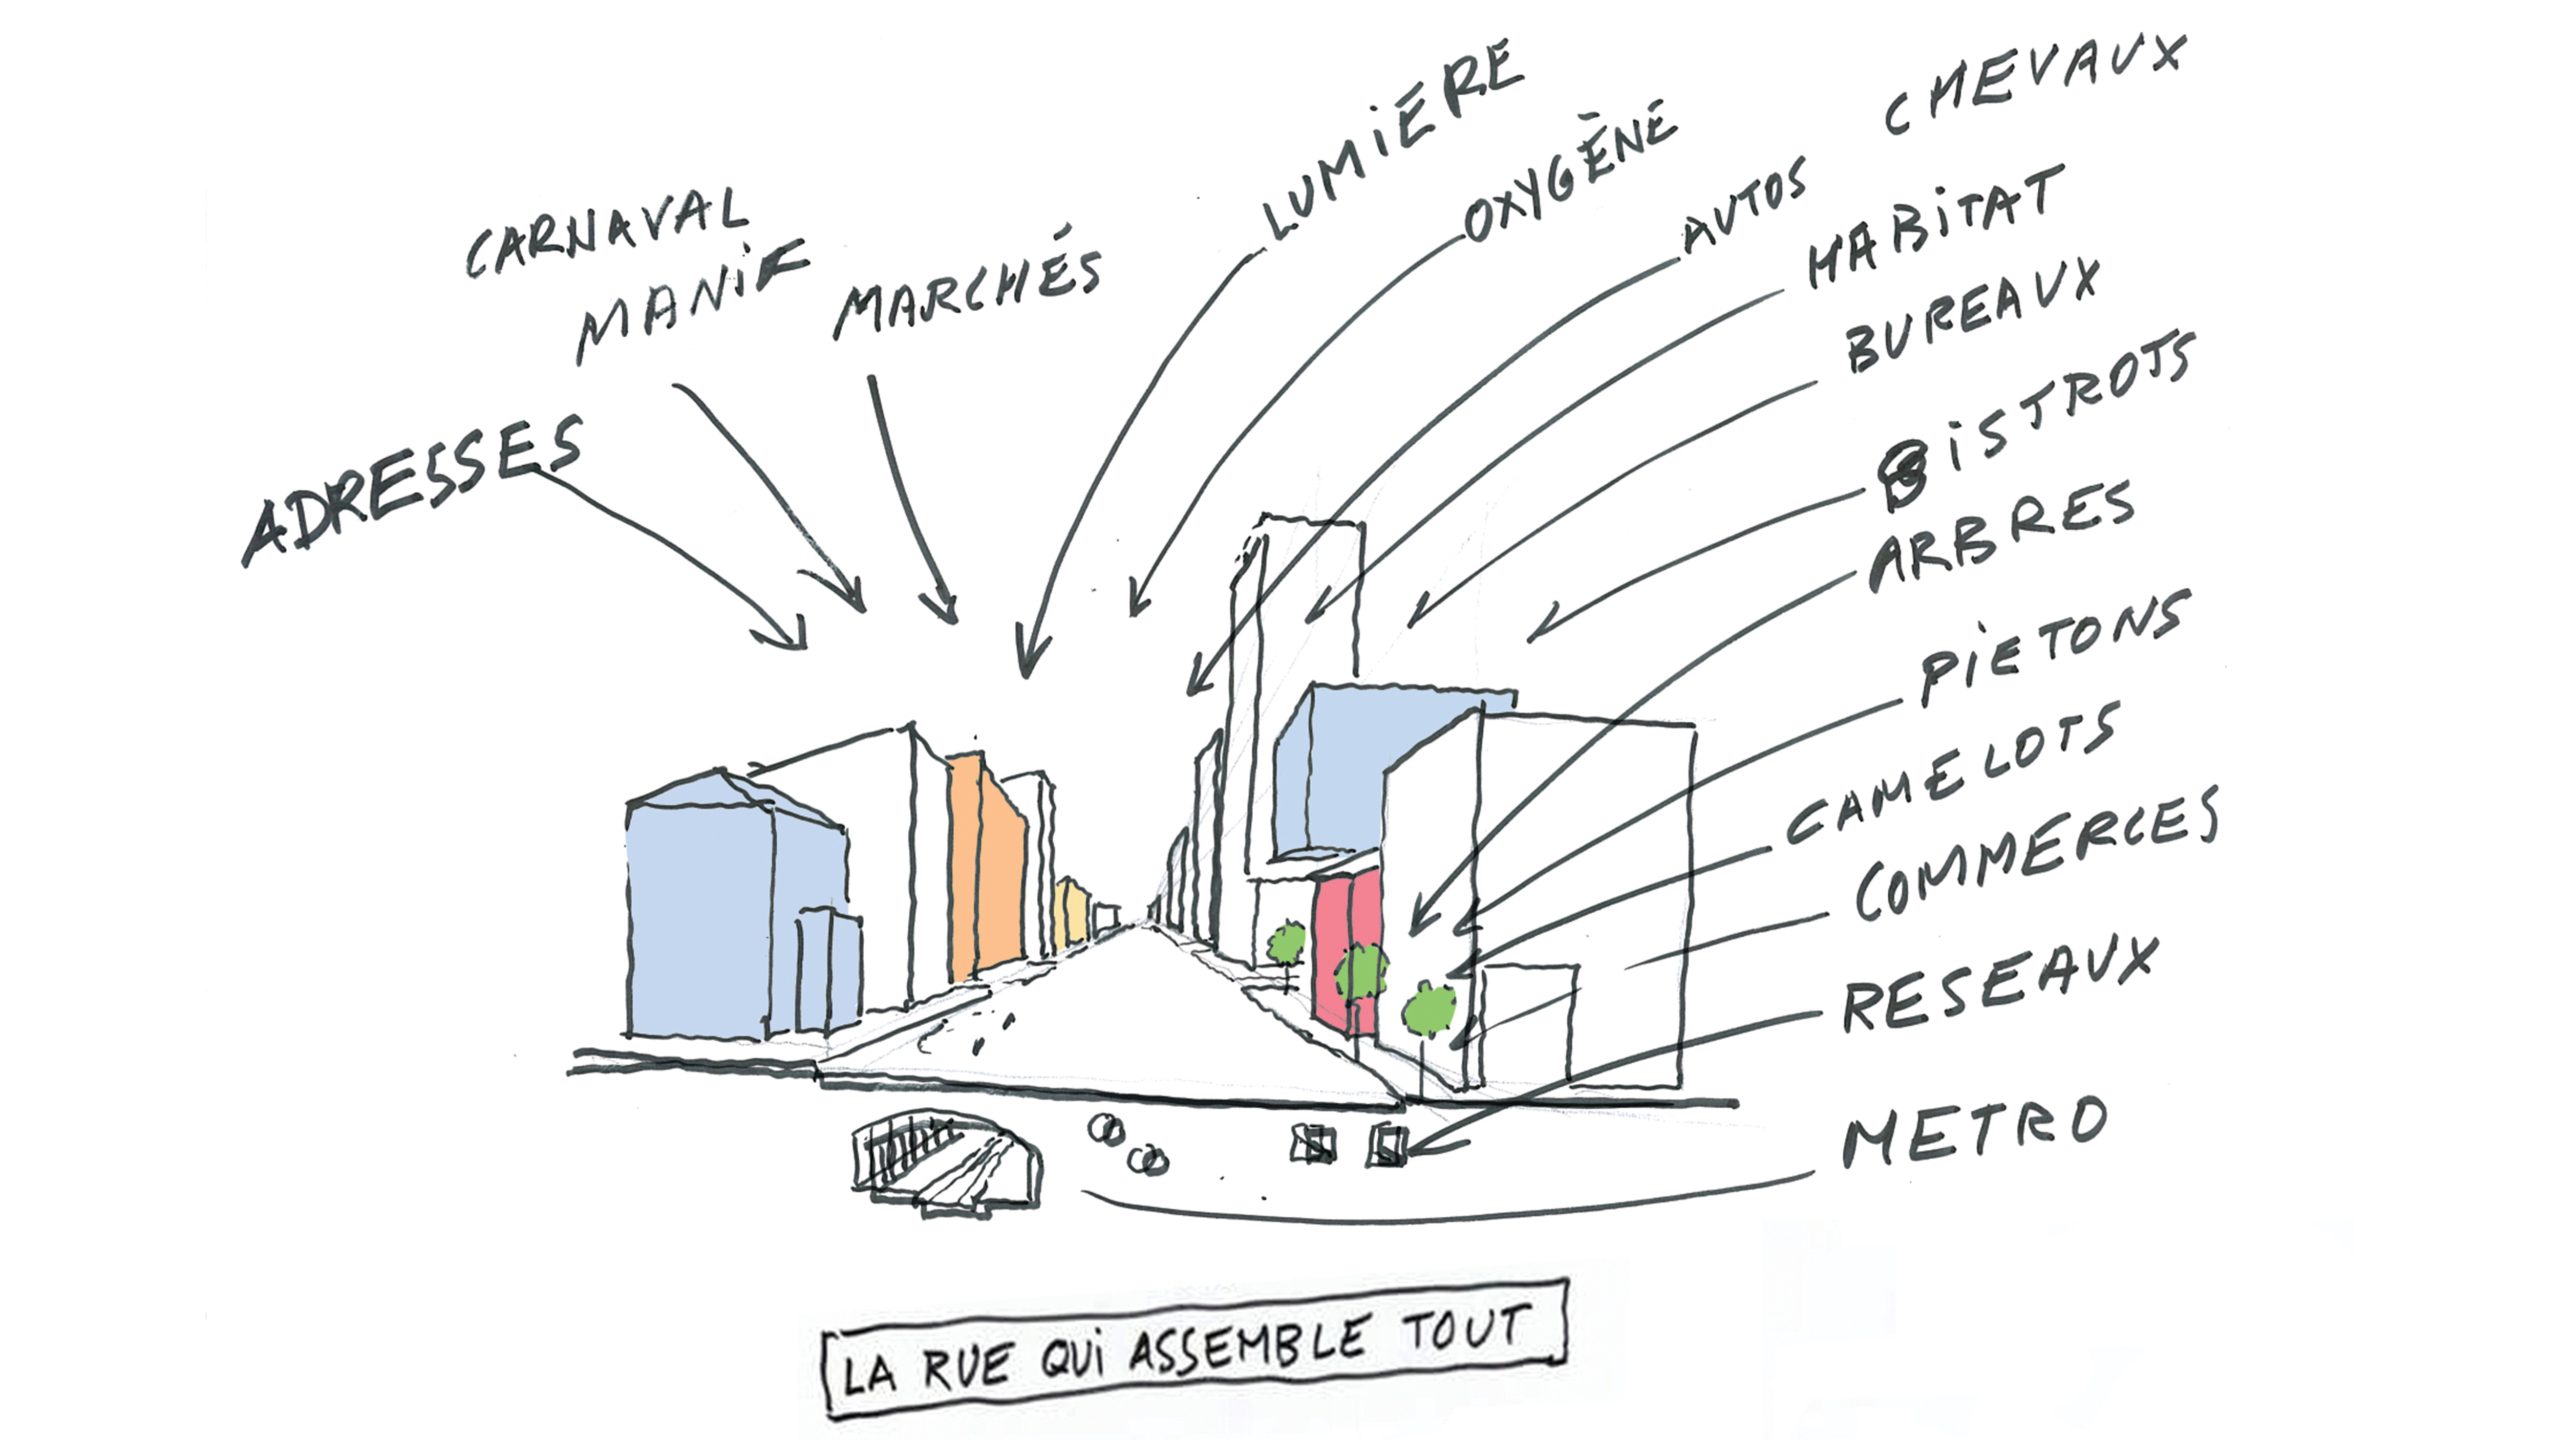 ADRESSES
CARNAVAL
MANIF
MARCHÉS
LUMIERE
OXYGÈNE
AUTOS
CHEVAUX
HABITAT
BUREAUX
BISTROTS
ARBRES
PIETONS
CAMELOTS
COMMERCES
RESEAUX
METRO
LA RUE QUI ASSEMBLE TOUT